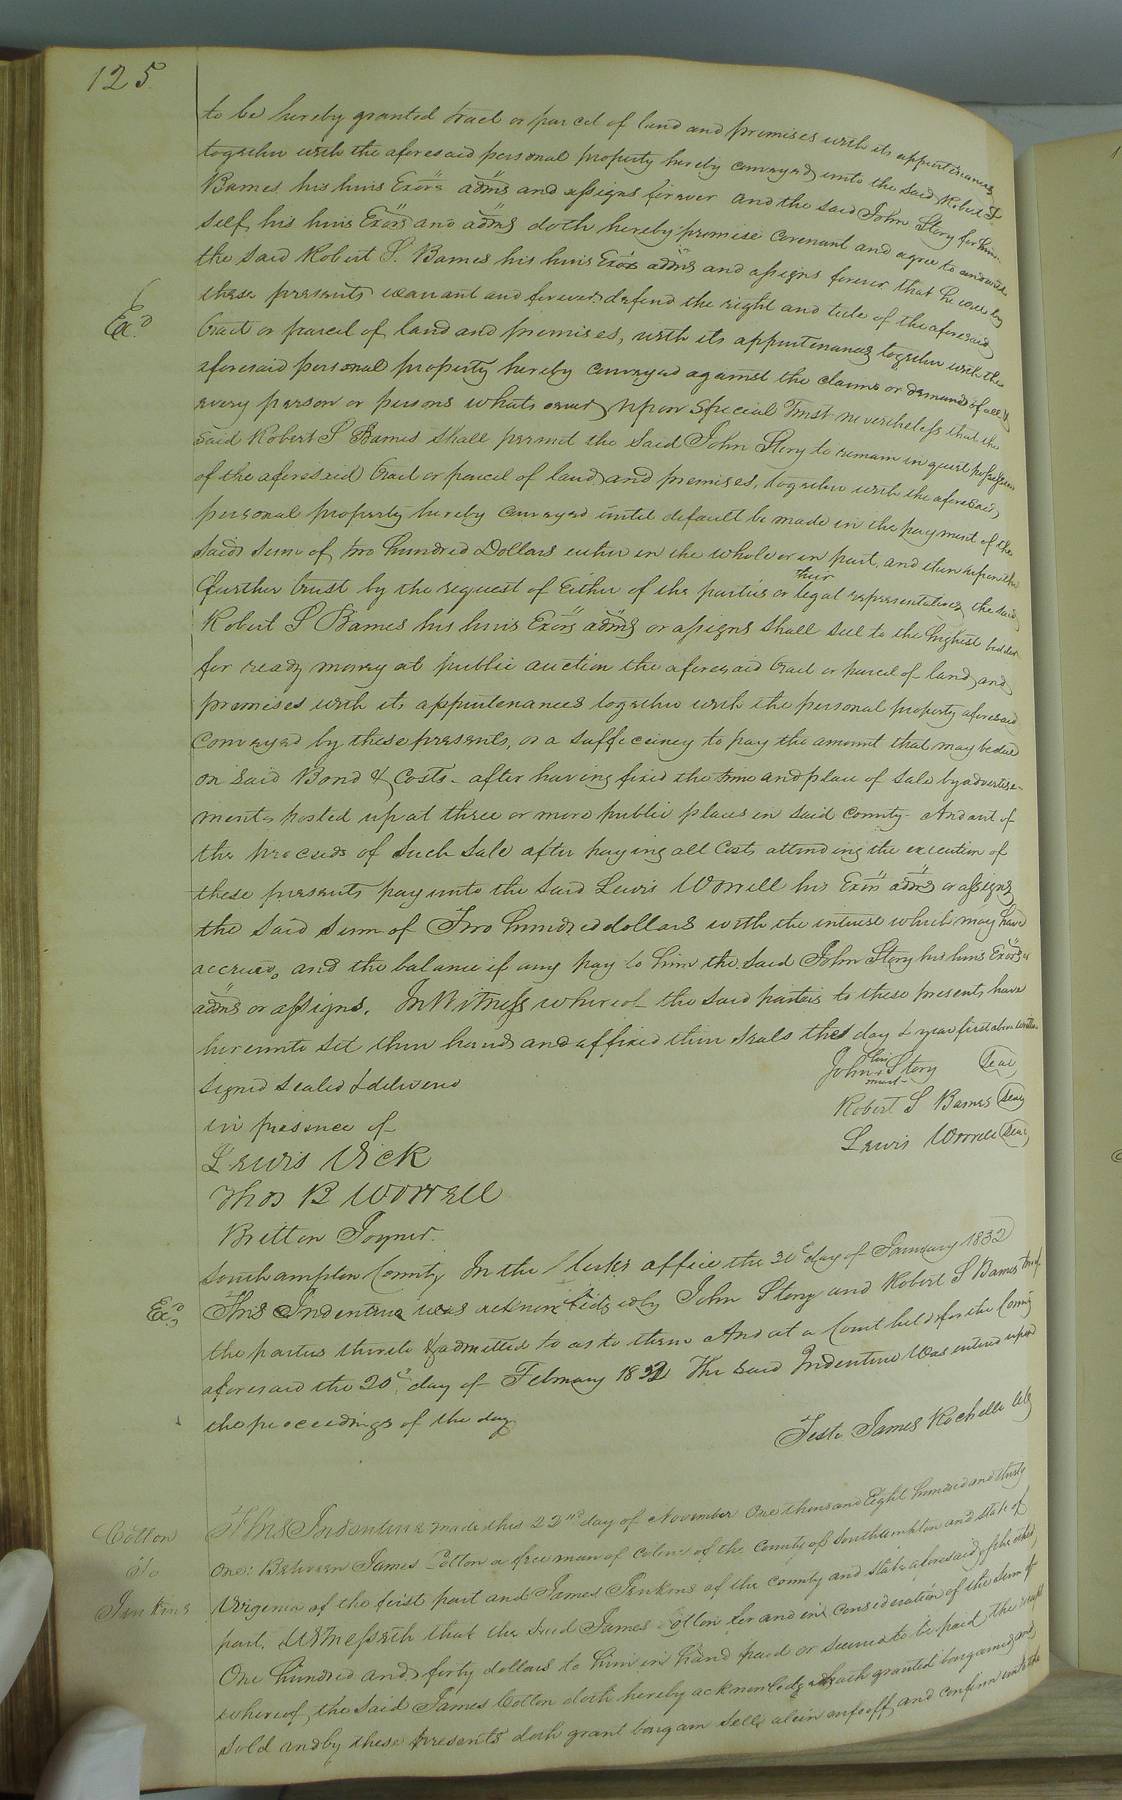 125
to be hereby granted tract or parcel of land and premises with its appurtenances
together with the aforesaid personal property hereby conveyed, unto the said Robert S
Barnes his heirs Exōrs admrs and assigns forever and the said John Story for him-
self, his heirs Exors and adms doth hereby promise covenant and agree to and with
the said Robert S. Barnes his heirs Exors adms and assigns forever that he will by
these presents warrant and forever defend the right and title of the aforesaid
Ex.d
tract or parcel of land and premises, with its appurtenances together with the
aforesaid personal property hereby conveyed against the claims or demands of all &
every person or persons whatsoever, upon Special Trust nevertheless that the
said Robert S Barnes shall permit the said John Story to remain in quiet possession
of the aforesaid tract or parcel of land and premises, together with the aforesaid
personal property hereby conveyed until default be made in the payment of the
said sum of two hundred Dollars either in the whole or in part, and then upon this
further trust by the request of Either of the parties or their legal representatives, the said
Robert S Barnes his heirs Exors adms or assigns shall sell to the highest bidder
for ready money at public auction the aforesaid tract or parcel of land, and
premises with its appurtenances together with the personal property aforesaid
conveyed by these presents, or a sufficiency to pay the amount that may be due
on said Bond & Costs - after having fixed the time and place of sale by advertise-
ments posted up at three or more public places in said county - And out of
the proceeds of such sale after paying all Costs attending the execution of
these presents pay unto the said Lewis Worrell his Exors adms or assigns
the said sum of Two hundred dollars with the interest which may have
accrued, and the balance if any pay to him the said John Story his heirs Exors
adms or assigns. In Witness whereof the said parties to these presents have
hereunto set their hands and affixed their seals the day & year first above written
signed sealed & delivered
John his mark Story Seal
in presence of
Robert S Barnes Seal
Lewis Vick
Lewis Worrell Seal
Thos B Worrell
Britton Joyner
Southampton County In the Clerks office the 30th day of January 1832
Ex.d
This Indenture was acknowledged by John Story and Robert S Barnes two of
the parties thereto & admitted to as to them And at a Court held for the County
aforesaid the 20th day of February 1832 The said Indenture was entered upon
the proceedings of the day
Teste James Rochelle Clk
Cotton
to
Jenkins
This Indenture made this 22nd day of November One thousand Eight hundred and thirty
One: Between James Cotton a free man of Colour of the County of Southampton and State of
Virginia of the first part and James Jenkins of the County and State aforesaid of the other
part. Witnesseth that the said James Cotton for and in consideration of the sum of
One hundred and forty dollars to him in hand paid or secured to be paid, the receipt
whereof the said James Cotton doth hereby acknowledge hath granted bargained and
sold and by these presents doth grant bargain sell alein enfeoff, and confirm unto the